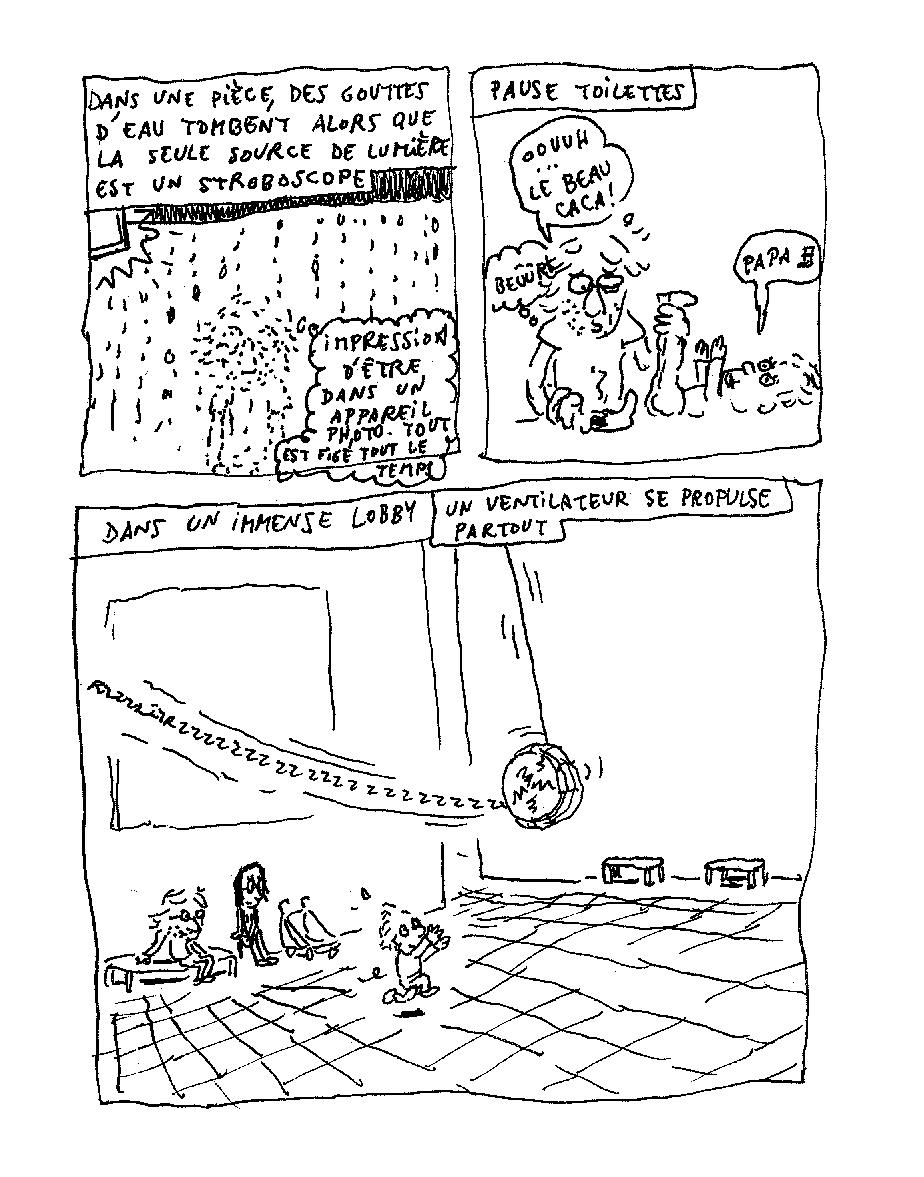 DANS UNE PIÈCE, DES GOUTTES
D'EAU TOMBENT ALORS QUE
LA SEULE SOURCE DE LUMIÈRE
EST UN STROBOSCOPE
IMPRESSION
D'ÊTRE
DANS UN
APPAREIL
PHOTO. TOUT
EST FIGÉ TOUT LE
TEMPS
PAUSE TOILETTES
OOUUH
...
LE BEAU
CACA!
BEUURK
PAPA
DANS UN IMMENSE LOBBY
UN VENTILATEUR SE PROPULSE
PARTOUT